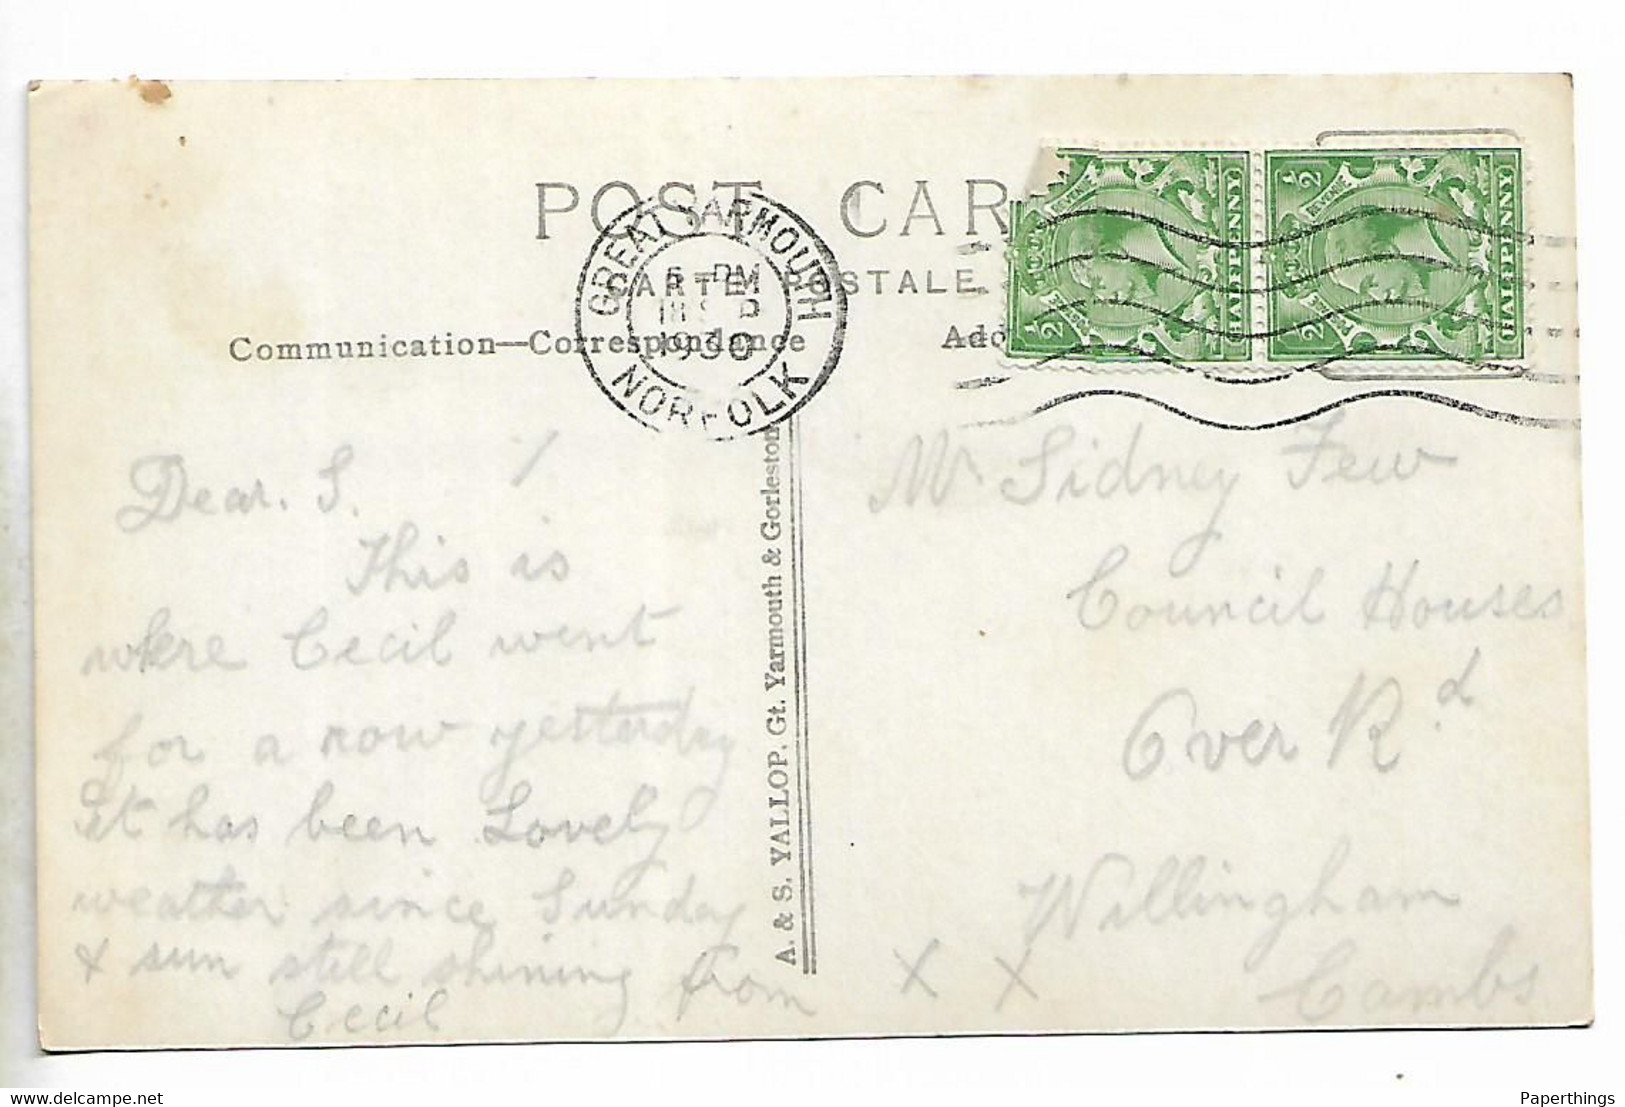 POST CAR
CARTE POSTALE
Communication—Correspondance
GREAT YARMOUTH
5 PM
1930
NORFOLK
REVENUE
HALFPENNY
HALFPENNY
Dear. S.
This is
where Cecil went
for a row yesterday
It has been Lovely
weather since Sunday
& sun still shining from
Cecil
X X
A. & S. YALLOP, Gt. Yarmouth & Gorleston
Mr Sidney Few
Council Houses
Over Rd
Willingham
Cambs
Paperthings
delcampe.net